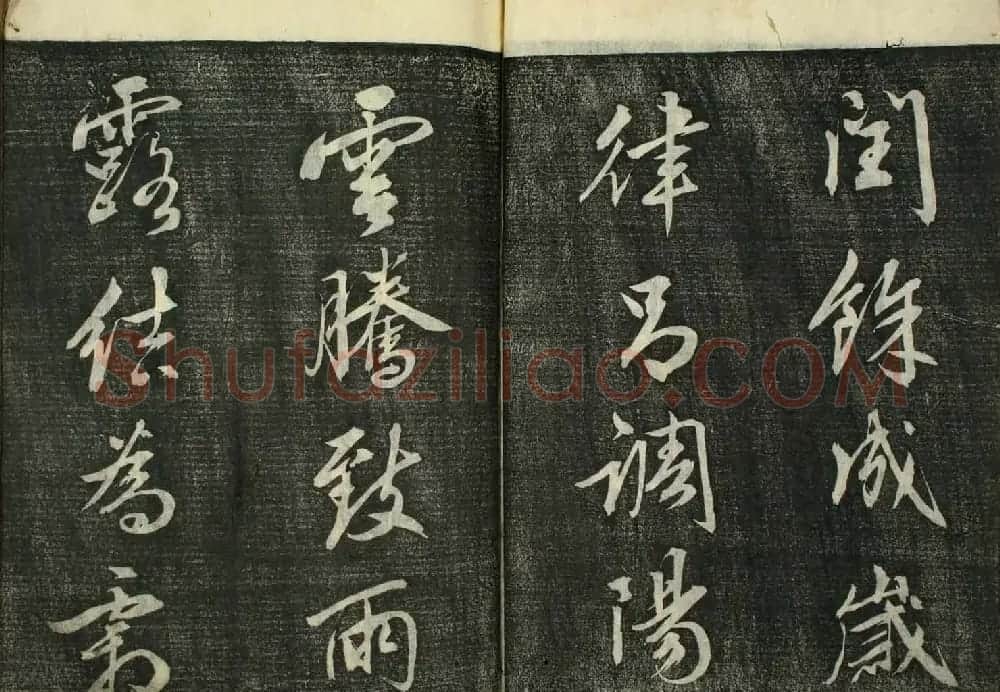 閏餘成歲
律呂調陽
雲騰致雨
露結為霜
Shufaziliao.COM